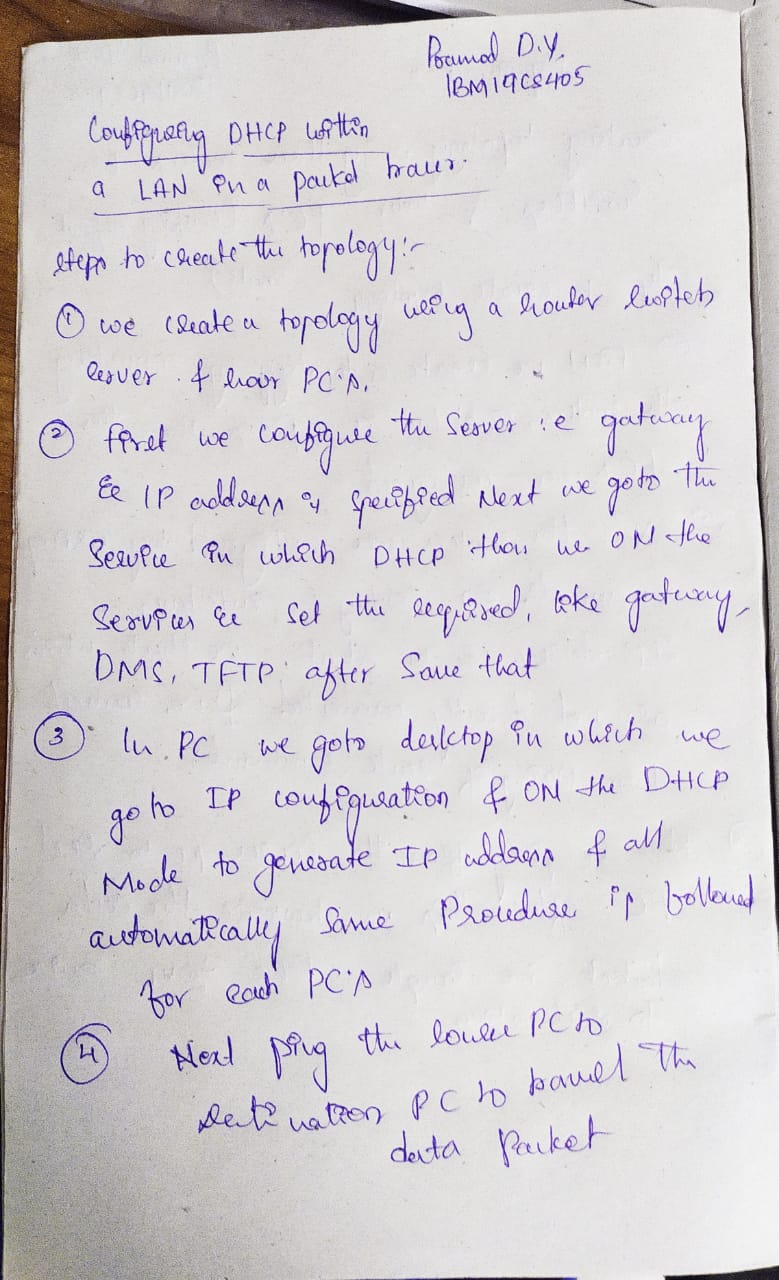 Pramod D.Y.
1BM19CS405
Configuring DHCP within
a LAN in a packet tracer.
steps to create the topology:-
① we create a topology using a router switch
server & four PC's.
② first we configure the Server i.e gatway
& IP address is specified Next we goto the
Service in which DHCP then we ON the
Services & Set the required, like gatway,
DMS, TFTP after Save that
③ In PC we goto desktop in which we
go to IP configuration & ON the DHCP
Mode to generate IP address & all
automatically Same Procedure is followed
for each PC's
④ Next ping the source PC to
destination PC to travel the
data Packet